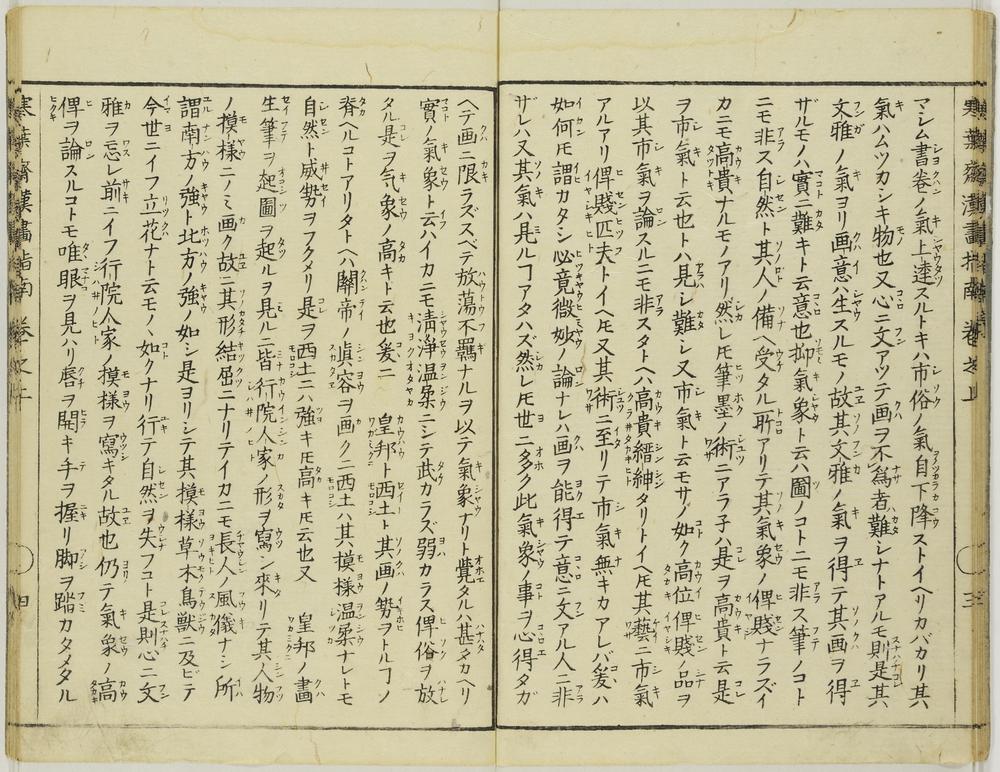 寒葉齋漢畫指南　卷之上　三
マシム書卷ノ氣上達スルトキハ市俗ノ氣自下降ストイヘリカバカリ其
氣ハムツカシキ物也又心ニ文アツテ画ヲ不為者難シナトアルモ則是其
文雅ノ氣ヨリ画意ハ生スルモノ故其文雅ノ氣ヲ得テ其画ヲ得
ザルモノハ實ニ難キト云意也抑氣象ト云ハ圖ノコトニモ非ス筆ノコト
ニモ非ス自然ト其人ノ備ヘ受タル所アリテ其氣象ノ俾賤ナラズイ
カニモ高貴ナルモノアリ然レ𪜈筆墨ノ術ニアラ子ハ是ヲ高貴ト云是
ヲ市氣ト云也トハ見シ難シ又市氣ト云モサノ如ク高位俾賤ノ品ヲ
以其市氣ヲ論スルニモ非スタトヘハ高貴縉紳タリトイヘ𪜈其藝ニ市氣
アルアリ俾賤匹夫トイヘ𪜈又其術ニ至リテ市氣無キカアレバ爰ハ
如何𪜈謂カタシ必竟微妙ノ論ナレハ画ヲ能得テ意ニ文アル人ニ非
サレハ又其氣ハ見ルヿアタハズ然レ𪜈世ニ多ク此氣象ノ事ヲ心得タガ
ヘテ画ニ限ラズスベテ放蕩不羈ナルヲ以テ氣象ナリト覺タルハ甚タカヘリ
實ノ氣象ト云ハイカニモ淸淨温柔ニシテ武カラズ弱カラス俾俗ヲ放
タル是ヲ気象ノ高キト云也爰ニ　皇邦ト西土ト其画ノ勢ヲトルコノ
脊ヘルコトアリタトヘハ關帝ノ眞容ヲ画クニ西土ハ其模様温柔ナレトモ
自然ト威勢ヲフクメリ是ヲ西土ニハ強キ𪜈高キ𪜈云也又　皇邦ノ畫
生筆ヲ起圖ヲ起ルヲ見ルニ皆行院人家ノ形ヲ寫シ來リテ其人物
ノ模様ニノミ画ク故ニ其形結屈ニナリテイカニモ長人ノ風儀ナシ所
謂南方ノ強ト北方ノ強ノ如シ是ヨリシテ其模様草木鳥獸ニ及ビテ
今世ニイフ立花ナト云モノヽ如クナリ行テ自然ヲ失フコト是則心ニ文
雅ヲ忘レ前ニイフ行院人家ノ模様ヲ寫キタル故也仍テ氣象ノ高
俾ヲ論スルコトモ唯眼ヲ見ハリ唇ヲ開キ手ヲ握リ脚ヲ踏カタメタル
寒葉齋漢畫指南　卷之上　四